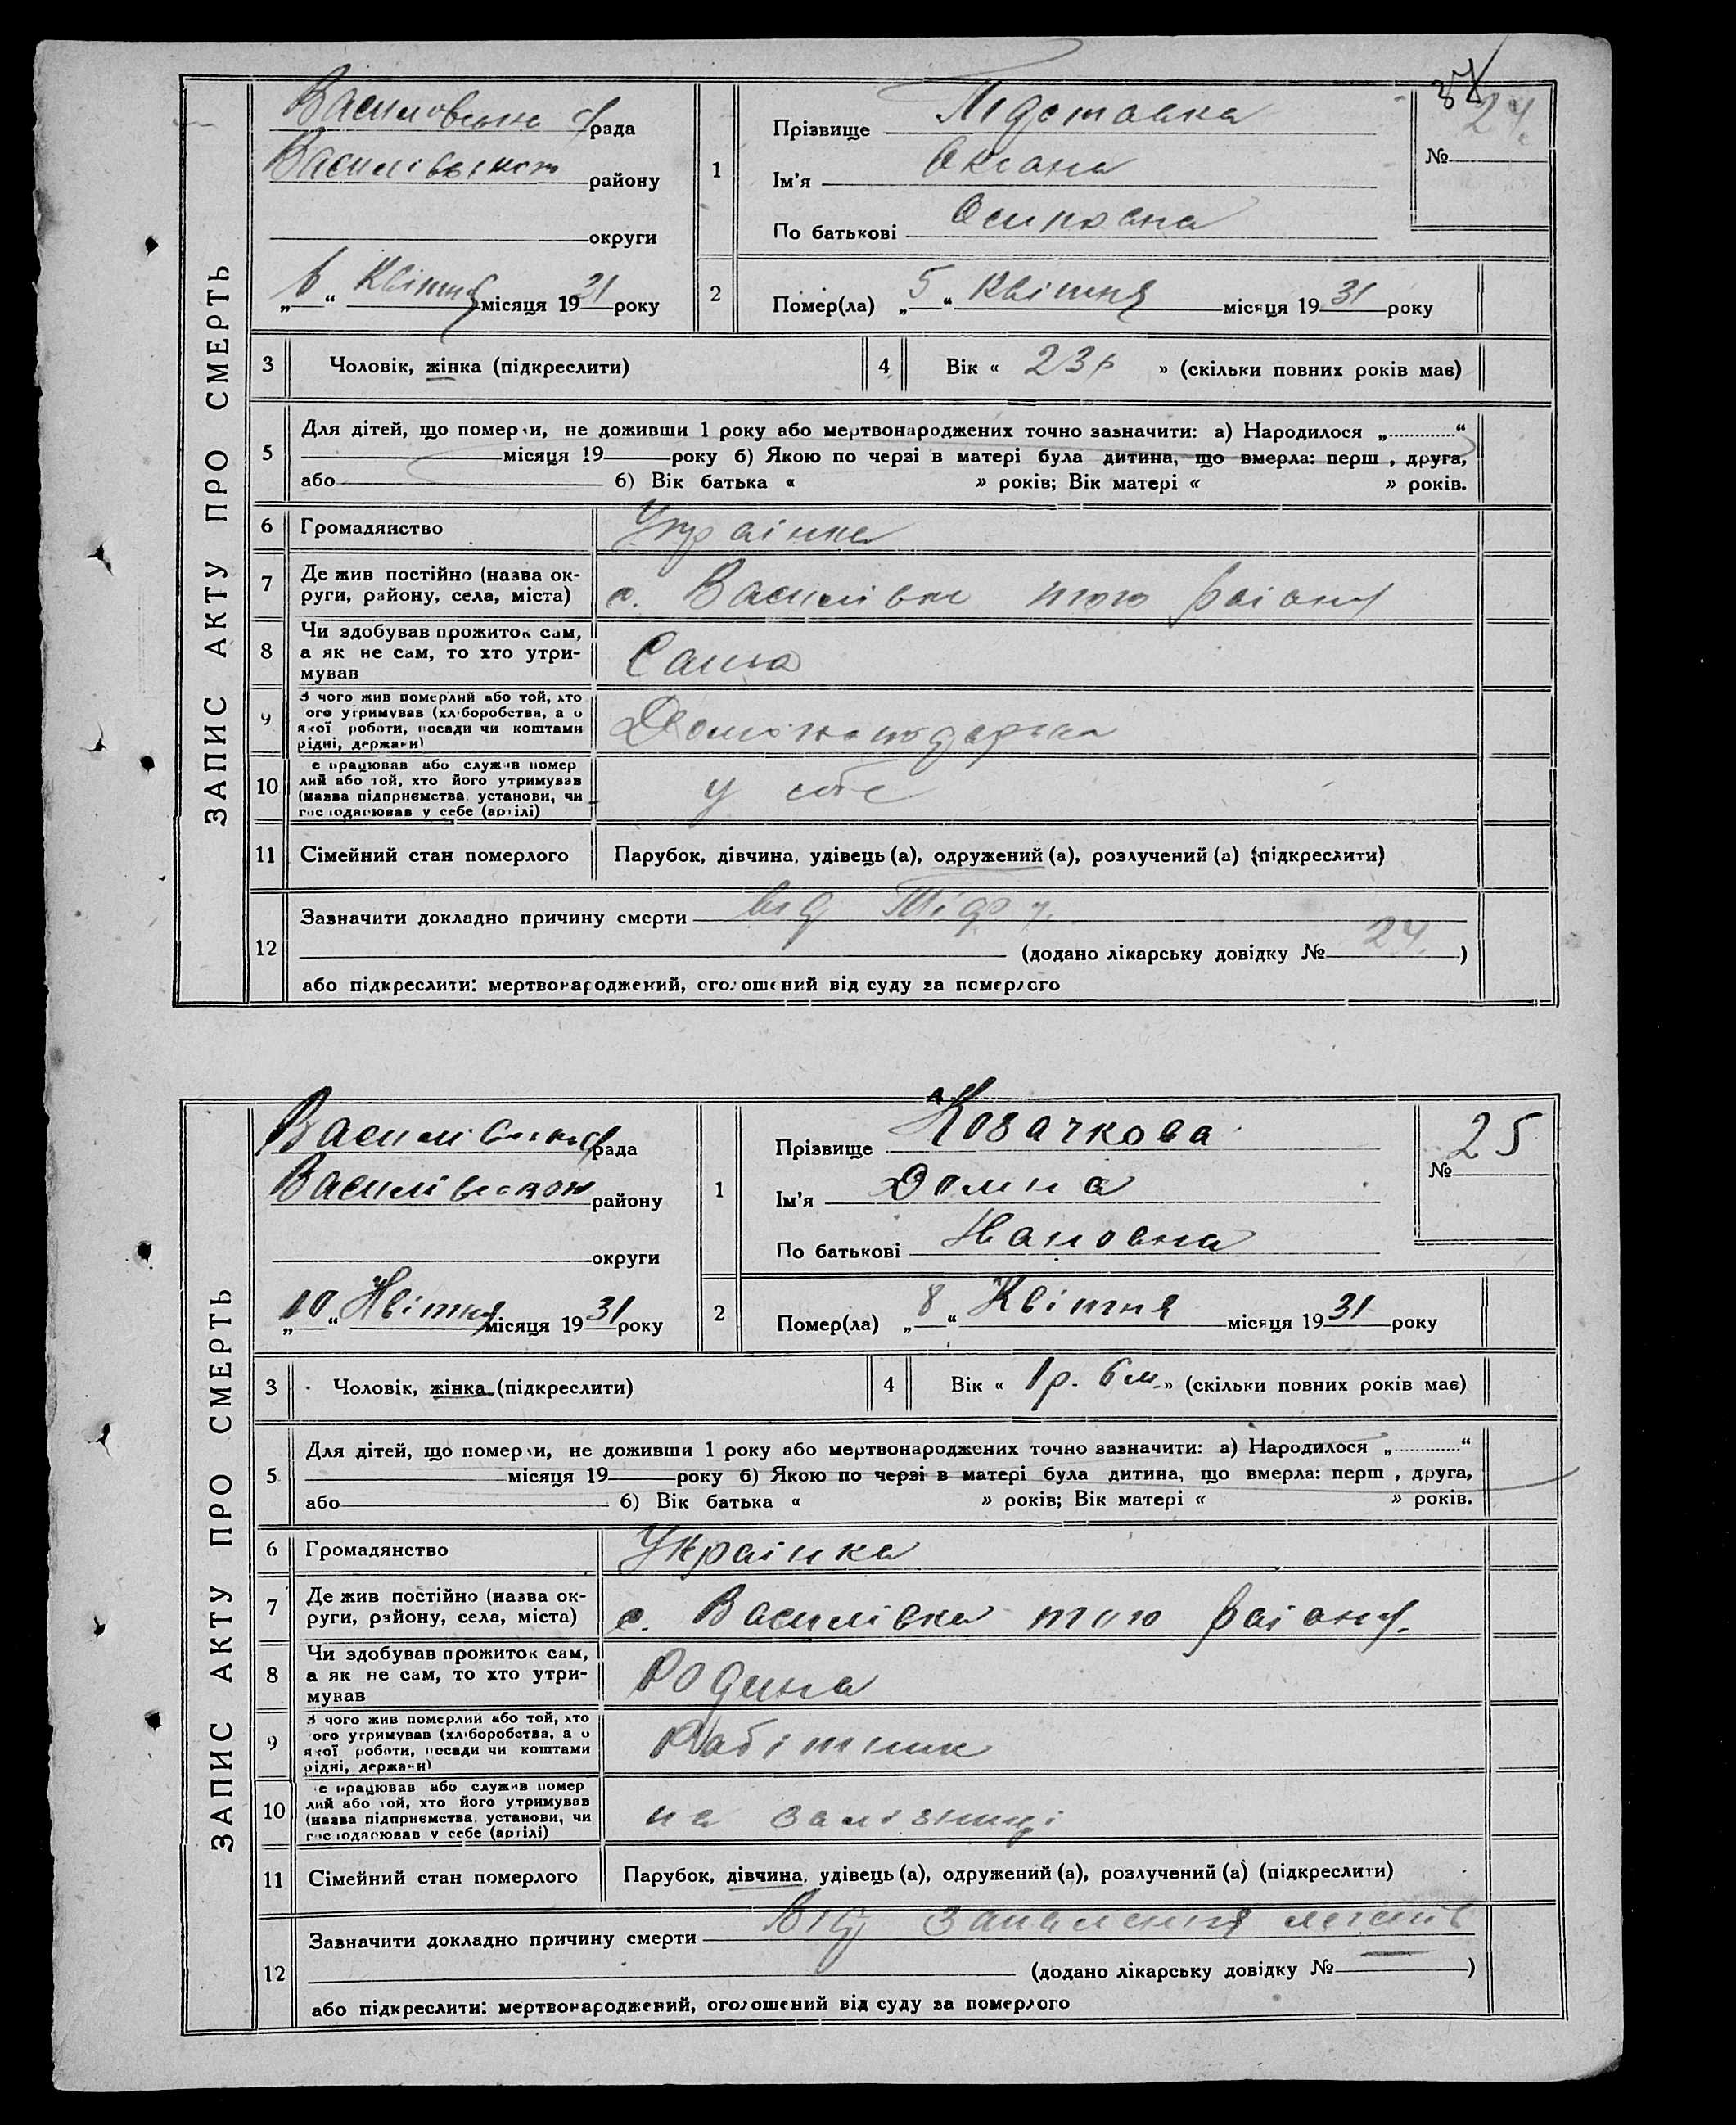 ЗАПИС АКТУ ПРО СМЕРТЬ
рада
району
округи
„6“ Квітня місяця 1931 року
1
Прізвище Підставка
Ім'я Оксана
По батькові Осиповна
№ 24
2
Помер(ла) „5“ Квітня місяця 1931 року
3 Чоловік, жінка (підкреслити)
4 Вік « 23 р » (скільки повних років має)
5
Для дітей, що померли, не доживши 1 року або мертвонароджених точно зазначити: а) Народилося „............“
місяця 19 року б) Якою по черзі в матері була дитина, що вмерла: перш , друга,
або б) Вік батька « » років; Вік матері « » років.
6 Громадянство Українка
7 Де жив постійно (назва ок-
руги, району, села, міста) с. Василівка того району
8 Чи здобував прожиток сам,
а як не сам, то хто утри-
мував Сама
9
З чого жив померлий або той, хто
ого утримував (хліборобства, а о
якої роботи, посади чи коштами
рідні, держави) Домогосподарка
10
е працював або служив помер
лий або той, хто його утримував
(назва підприємства, установи, чи
господарював у себе (артілі) у себе
11 Сімейний стан померлого Парубок, дівчина, удівець (а), одружений (а), розлучений (а) (підкреслити)
12
Зазначити докладно причину смерти від
(додано лікарську довідку № 24)
або підкреслити: мертвонароджений, оголошений від суду за померлого
ЗАПИС АКТУ ПРО СМЕРТЬ
рада
району
округи
„10“ Квітня місяця 1931 року
1
Прізвище Козачкова
Ім'я Домна
По батькові
№ 25
2
Помер(ла) „8“ Квітня місяця 1931 року
3 Чоловік, жінка (підкреслити)
4 Вік « 1 р. 6 м. » (скільки повних років має)
5
Для дітей, що померли, не доживши 1 року або мертвонароджених точно зазначити: а) Народилося „............“
місяця 19 року б) Якою по черзі в матері була дитина, що вмерла: перш , друга,
або б) Вік батька « » років; Вік матері « » років.
6 Громадянство Українка
7 Де жив постійно (назва ок-
руги, району, села, міста) с. Василівка того району.
8 Чи здобував прожиток сам,
а як не сам, то хто утри-
мував Родина
9
З чого жив померлий або той, хто
ого утримував (хліборобства, а о
якої роботи, посади чи коштами
рідні, держави) Робітник
10
е працював або служив помер
лий або той, хто його утримував
(назва підприємства, установи, чи
господарював у себе (артілі) на залізниці
11 Сімейний стан померлого Парубок, дівчина, удівець (а), одружений (а), розлучений (а) (підкреслити)
12
Зазначити докладно причину смерти Від запалення легенів
(додано лікарську довідку № —)
або підкреслити: мертвонароджений, оголошений від суду за померлого